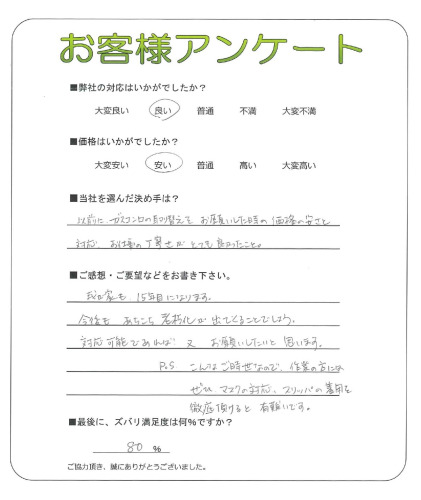 お客様アンケート
■弊社の対応はいかがでしたか?
大変良い 良い 普通 不満 大変不満
■価格はいかがでしたか?
大変安い 安い 普通 高い 大変高い
■当社を選んだ決め手は?
以前に ガスコンロの取り替えで お願いした時の 価格の安さと
対応、お仕事の丁寧さが とても 良かったこと。
■ご感想・ご要望などをお書き下さい。
我が家も 15年目になります。
今後も あちこち 老朽化が 出てくることでしょう。
対応可能であれば 又 お願いしたいと 思います。
P.S こんな ご時世なので、作業の方には
ぜひ マスクの対応、スリッパの着用を
徹底頂けると 有難いです。
■最後に、ズバリ満足度は何%ですか?
80 %
ご協力頂き、誠にありがとうございました。